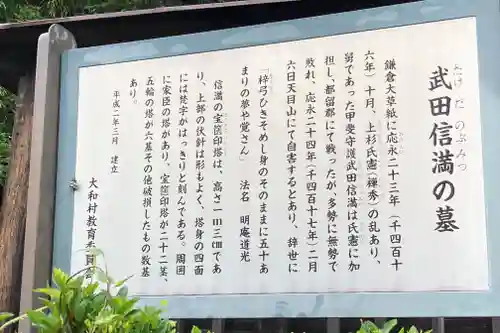 武田信満の墓
たけ だ のぶみつ
鎌倉大草紙に応永二十三年(千四百十
六年)十月、上杉氏憲(禅秀)の乱あり、
舅であった甲斐守護武田信満は氏憲に加
担し、都留郡にて戦ったが、多勢に無勢で
敗れ、応永二十四年(千四百十七年)二月
六日天目山にて自害するとあり、辞世に
「梓弓ひきそめし身のそのままに五十あ
まりの夢や覚さん」 法名 明庵道光
信満の宝篋印塔は、高さ一m三㎝であ
り、上部の伏針は形もよく、塔身の四面
には梵字がはっきりと刻んである。周囲
に家臣の塔があり、宝篋印塔が二十二基、
五輪の塔が六基その他破損したもの数基
あり。
平成一年三月 建立
大和村教育委員会